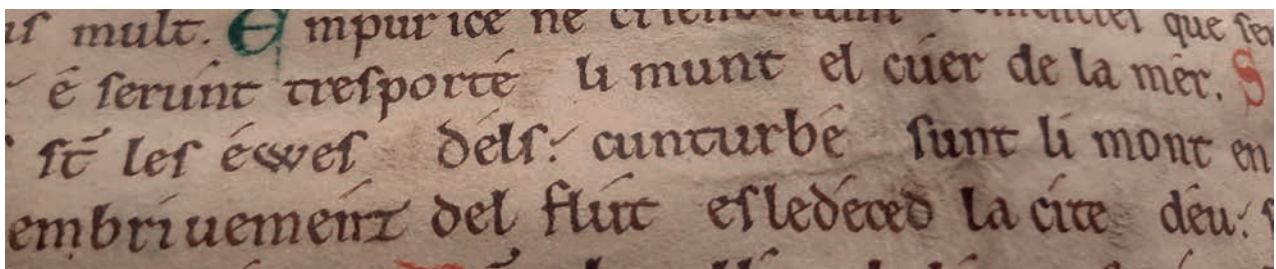 uſ mult. E mpur ice ne crienderunt que ſer
é ſerúnt treſporté li munt el cúer de la mér. S
ſt̄ leſ éweſ délſ. cunturbé ſunt li mont en
embríuement del flút eſledéced la cíte déu. ſ